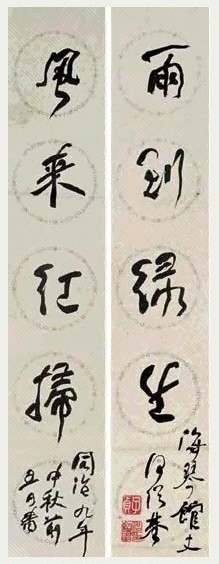 雨到綠生
海琴館丈
何紹基
風来紅掃
同治九年
中秋前
五日書